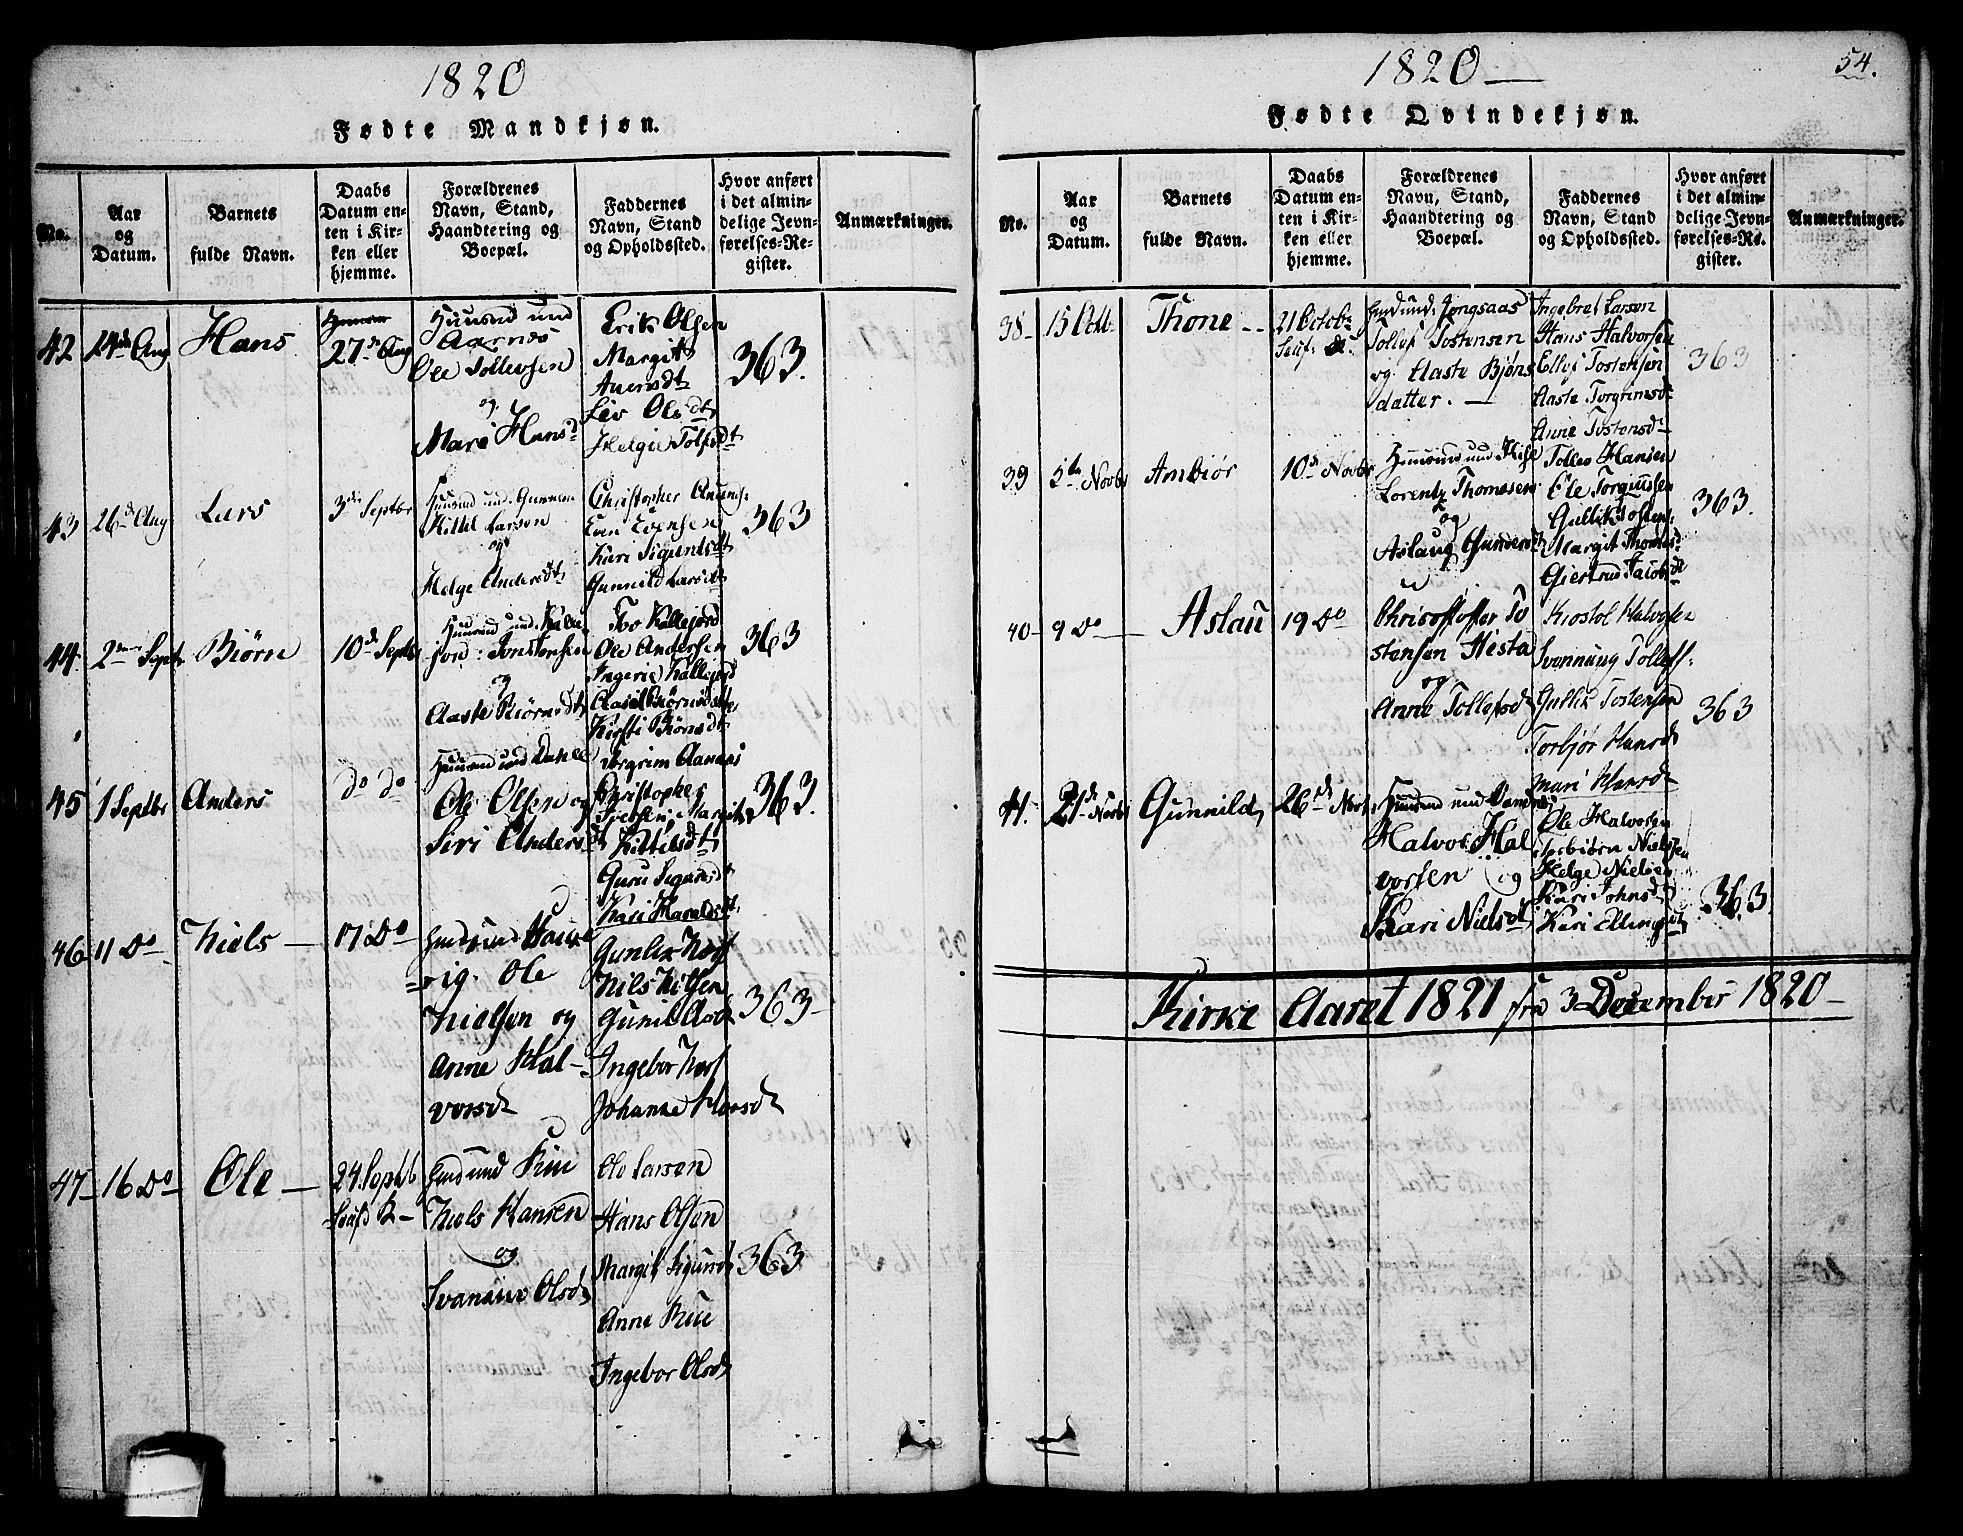 1820
Fødte Mandkjøn.
No.
Aar
og
Datum.
Barnets
fulde Navn.
Daabs
Datum en-
ten i Kir-
ken eller
hjemme.
Forældrenes
Navn, Stand,
Haandtering og
Boepæl.
Faddernes
Navn, Stand
og Opholdssted.
Hvor anført
i det almin-
delige Jevn-
førelses-Re-
gister.
Anmærkninger.
42
24de Aug
Hans
27de Aug
Huusmd und
Aarnæs
Ole Tollevsen
og
Mari Hansd
Erik Olsen
Margit
Liv Olsdt
Helgie Tolfsdt
363.
43
26de Aug
Lars
3die Septbr
Huusmd und
Kittel Larson
og
Helge Andersdt
Christopher
Even Evensen
Kari Sigurdsdt
Gunnild Larsdt
363
44
2den Septr
Biørn
10de Septbr
Huusmd und. Kalle-
jord: Jon Jonsen
og
Aaste Biørnsdt
Ivo Kallejord
Ole Andersen
Ingerie Kallejord
Aasil Biørnsdatter
Kirsti Biørnsdt
363
45
1 Septbr
Anders
do do
Huusmd und Dahle
Ole Olsen og
Siri Andersdt
Torgrim Aanæs
Christopher
Iversen. Margit
Kittilsdt
Guru Sigursdt
Kari Haraldsdt
363.
46
11 Do
Niels
17 Do
Huusmd Haukve-
rig. Ole
Nielsen og
Anne Hal-
vorsdt
Gunlek Korf
Nils Nilsen
Gunil
Ingebor Korf
Johanne Horsdt
363
47
16 Do
Ole
24. Septb
Sauf K
Husd und Kuu
Niels Hansen
og
Svanaue Olsdt
Ole Larsen
Hans Olsen
Margit Sigursdt
Anne Kuu
Ingebor Olsdt
363
1820
54.
Fødte Qvindekjøn.
No.
Aar
og
Datum.
Barnets
fulde Navn.
Daabs
Datum en-
ten i Kir-
ken eller
hjemme.
Forældrenes
Navn, Stand,
Haandtering og
Boepæl.
Faddernes
Navn, Stand
og Opholdssted.
Hvor anført
i det almin-
delige Jevn-
førelses-Re.
gister.
Anmærkninger.
38
15 Octb.
Thone
21 Octobr
Sauf: K.
Husd und: Jongsaas
Tollef Tostensen
og Aaste Bjørns
datter.
Ingebret Larsen
Hans Halvorsen
Ellef Tostensen
Aaste Torgrimsdt
Anne Tostensdt
363
39
5te Novbr
Anbiør
10de Novbr
Huusmd und Kise
Lorentz Thomesen
og
Aslaug Gundersdt
Tollev Hansen
Ole Torgussen
Gullik Tostens:
Margit Thomesd
Giertrud Jacobsdt
363.
40
9 Do
Aslau
19 Do
Christoffer To
stensen Hesta
og
Anne Tollefsdt
Kiostol Halvorsen
Svennung Tollefs:
Gullik Tostensen
Torbjør Hansdt
Mari Hansdt
363
41.
21de Novbr
Gunnild
26de Novbr
Huusmd und
Halvor Hal
vorsen og
Kari Nielsdt
Ole Halvorsen
Torbiørn Nielssen
Helge Nielsen
Kari Johnsdt
Kari Ellingsdt
363
Kirke Aaret 1821 fra 3 December 1820